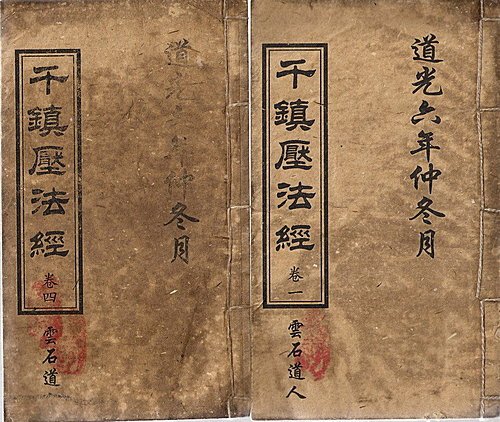 道光六年仲冬月
千鎮壓法經
卷一
雲石道人
道光六年仲冬月
千鎮壓法經
卷四
雲石道